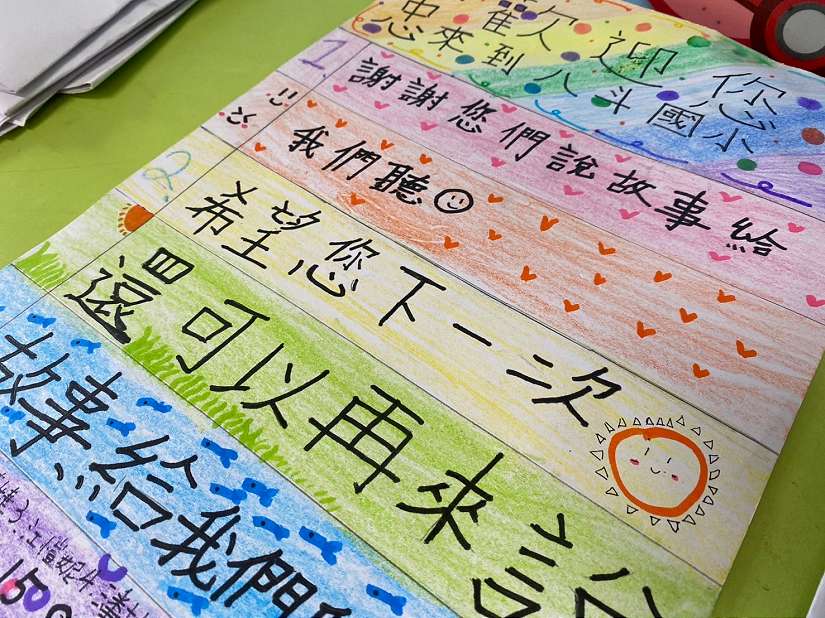 歡迎您
您來到八斗國小
1.
謝謝您們說故事給
我們聽
2.
希望您下一次
還可以再來說
故事給我們